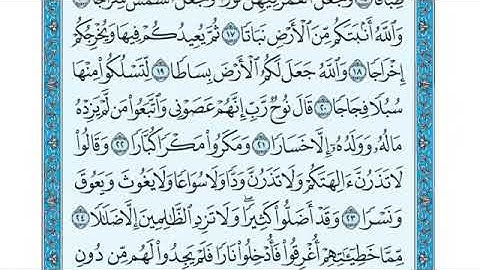 طِبَاقًا ﴿١٥﴾ وَجَعَلَ ٱلْقَمَرَ فِيهِنَّ نُورًا وَجَعَلَ ٱلشَّمْسَ سِرَاجًا ﴿١٦﴾
وَٱللَّهُ أَنۢبَتَكُم مِّنَ ٱلْأَرْضِ نَبَاتًا ﴿١٧﴾ ثُمَّ يُعِيدُكُمْ فِيهَا وَيُخْرِجُكُمْ
إِخْرَاجًا ﴿١٨﴾ وَٱللَّهُ جَعَلَ لَكُمُ ٱلْأَرْضَ بِسَاطًا ﴿١٩﴾ لِّتَسْلُكُوا۟ مِنْهَا
سُبُلًا فِجَاجًا ﴿٢٠﴾ قَالَ نُوحٌ رَّبِّ إِنَّهُمْ عَصَوْنِى وَٱتَّبَعُوا۟ مَن لَّمْ يَزِدْهُ
مَالُهُۥ وَوَلَدُهُۥٓ إِلَّا خَسَارًا ﴿٢١﴾ وَمَكَرُوا۟ مَكْرًا كُبَّارًا ﴿٢٢﴾ وَقَالُوا۟
لَا تَذَرُنَّ ءَالِهَتَكُمْ وَلَا تَذَرُنَّ وَدًّا وَلَا سُوَاعًا وَلَا يَغُوثَ وَيَعُوقَ
وَنَسْرًا ﴿٢٣﴾ وَقَدْ أَضَلُّوا۟ كَثِيرًا ۖ وَلَا تَزِدِ ٱلظَّٰلِمِينَ إِلَّا ضَلَٰلًا ﴿٢٤﴾
مِّمَّا خَطِيٓـَٰٔتِهِمْ أُغْرِقُوا۟ فَأُدْخِلُوا۟ نَارًا فَلَمْ يَجِدُوا۟ لَهُم مِّن دُونِ